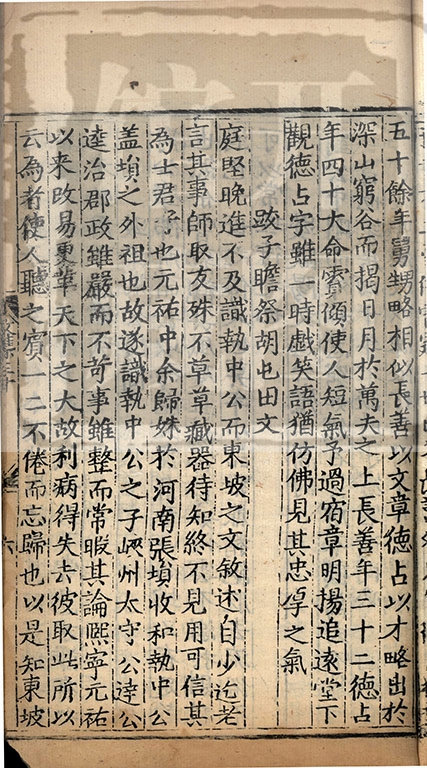 五十餘年舅甥略相似長善以文章德占以才略出於
深山窮谷而揭日月於萬夫之上長善年三十二德占
年四十大命霣傾使人短氣予過宿章明揚追遠堂下
觀德占字雖一時戲笑語猶彷佛見其忠厚之氣
跋子瞻祭胡屯田文
庭堅晚進不及識執中公而東坡之文敘述自少迄老
言其事師取友殊不草草藏器待知終不見用可信其
為士君子也元祐中余歸妹於河南張塤收和執中公
盖塤之外祖也故遂識執中公之子峽州太守公達公
逵治郡政雖嚴而不苛事雖整而常暇其論熈寧元祐
以来改易更革天下之大故利病得失去彼取此所以
云為者使人聽之亹一二不倦而忘歸也以是知東坡